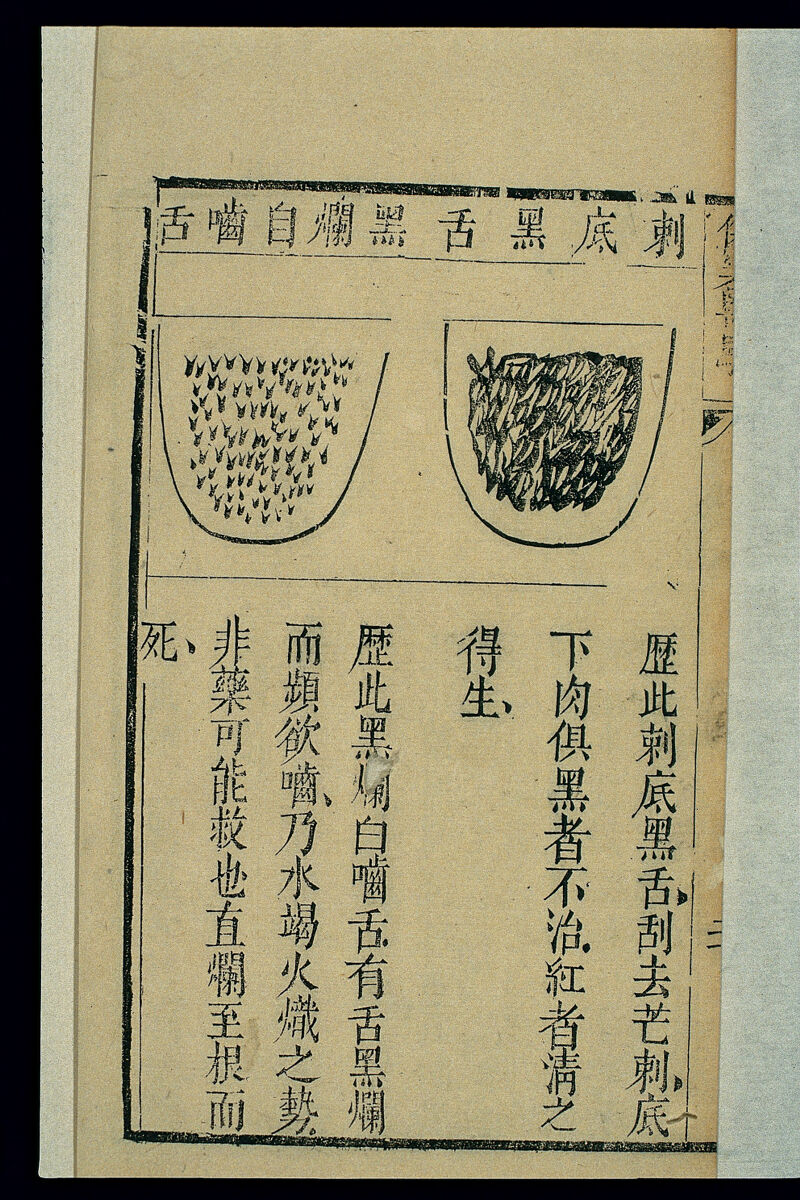 刺底黑舌
黑爛自嚙舌
歷此刺底黑舌、刮去芒刺、底
下肉俱黑者不治、紅者淸之
得生、
歷此黑爛自嚙舌、有舌黑爛
而頻欲嚙、乃水竭火熾之勢、
非藥可能救也直爛至根而
死、